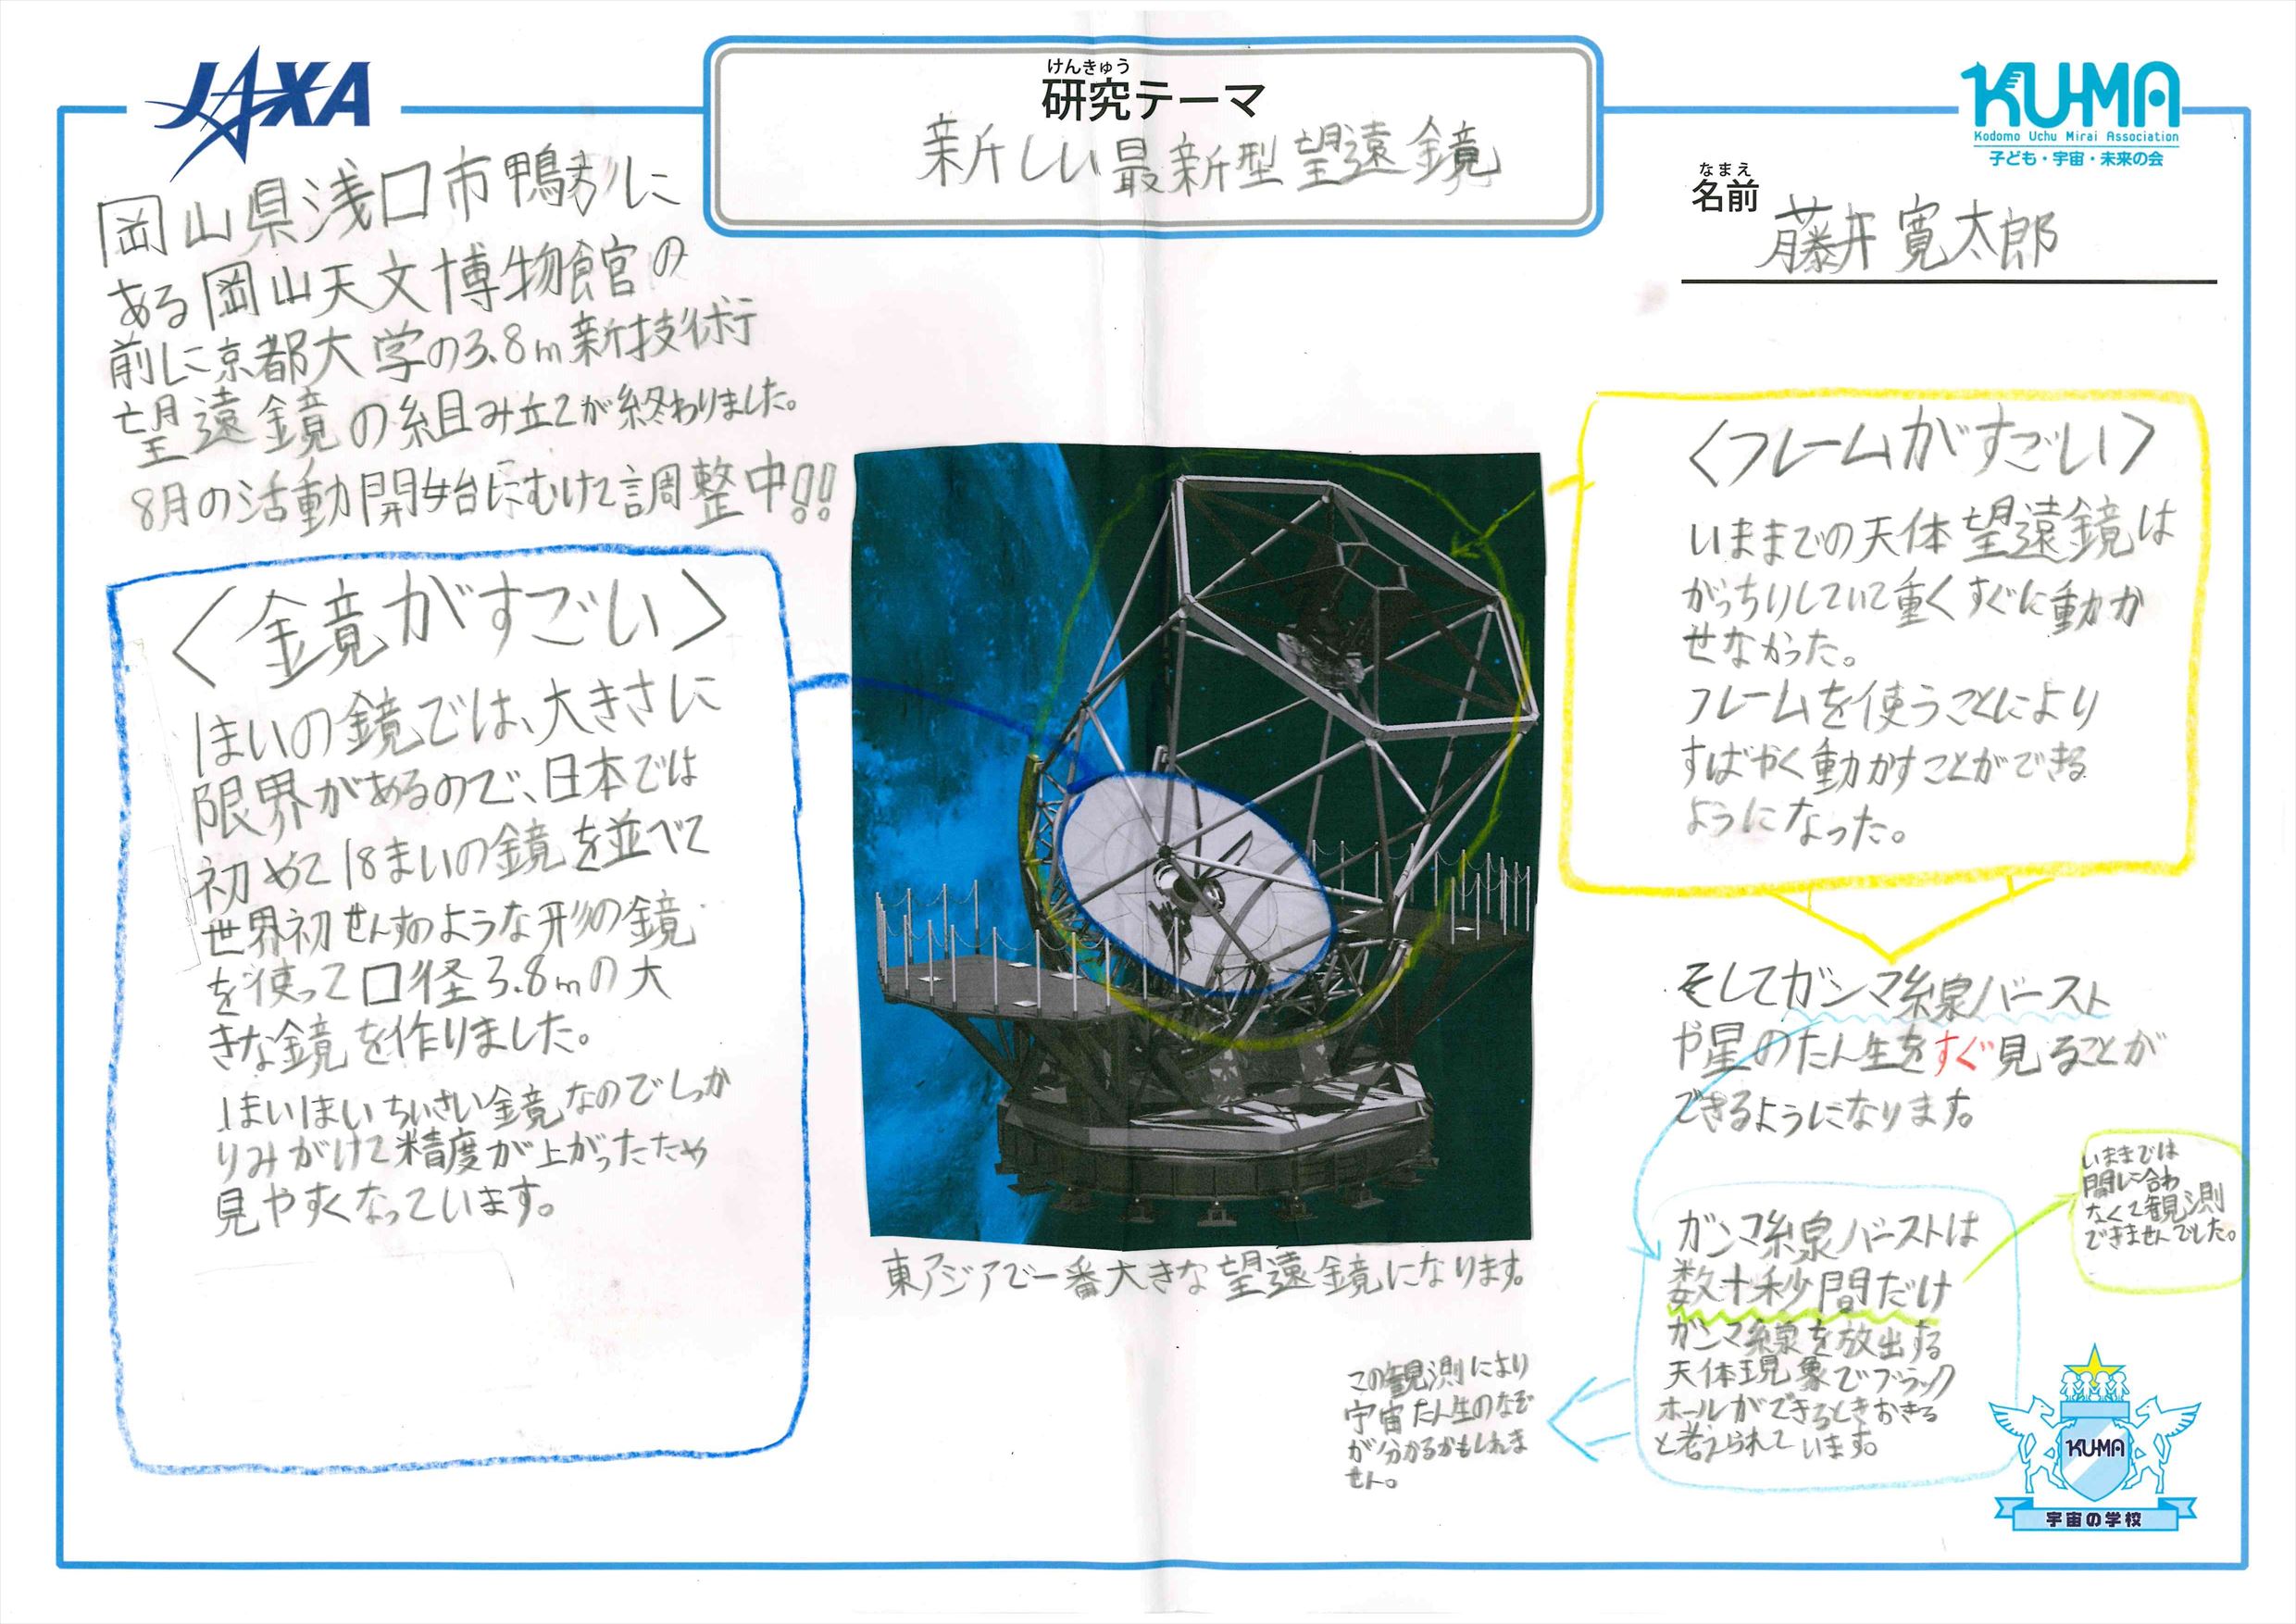 JAXA
けんきゅう
研究テーマ
新しい最新型望遠鏡
KU-MA
Kodomo Uchu Mirai Association
子ども・宇宙・未来の会
なまえ
名前
藤井寛太郎
岡山県浅口市鴨方に
ある岡山天文博物館の
前に京都大学の3.8m新技術
望遠鏡の組み立てが終わりました。
8月の活動開始にむけて調整中!!
〈鏡がすごい〉
1まいの鏡では、大きさに
限界があるので、日本では
初めて18まいの鏡を並べて
世界初せんすのような形の鏡
を使って口径3.8mの大
きな鏡を作りました。
1まい1まいちいさい鏡なのでしっか
りみがけて精度が上がったため
見やすくなっています。
東アジアで一番大きな望遠鏡になります。
〈フレームがすごい〉
いままでの天体望遠鏡は
がっちりしていて重くすぐに動か
せなかった。
フレームを使うことにより
すばやく動かすことができる
ようになった。
そしてガンマ線バースト
や星のたん生をすぐ見ることが
できるようになります。
ガンマ線バーストは
数十秒間だけ
ガンマ線を放出する
天体現象でブラック
ホールができるときおきる
と考えられています。
いままでは
間に合わ
なくて観測
できませんでした。
この観測により
宇宙たん生のなぞ
が分かるかもしれま
せん。
KU-MA
宇宙の学校